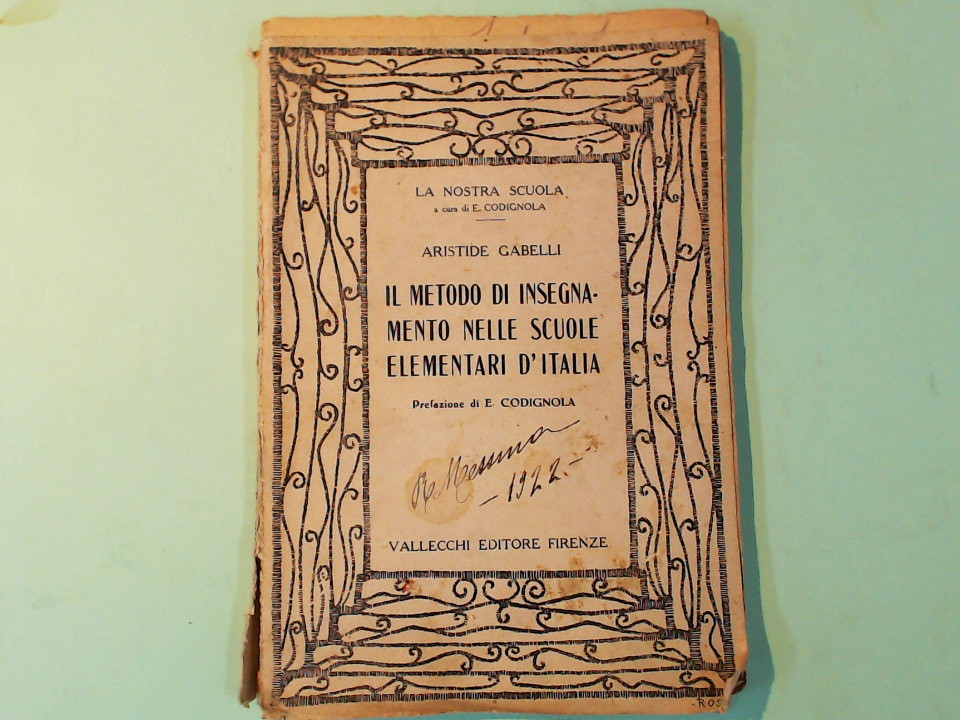 LA NOSTRA SCUOLA
a cura di E. CODIGNOLA
ARISTIDE GABELLI
IL METODO DI INSEGNA-
MENTO NELLE SCUOLE
ELEMENTARI D'ITALIA
Prefazione di E. CODIGNOLA
R Messina
- 1922 -
VALLECCHI EDITORE FIRENZE